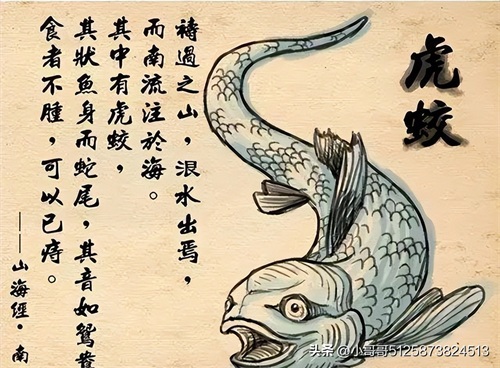 虎蛟
禱過之山，泿水出焉，
而南流注於海。
其中有虎蛟，
其狀魚身而蛇尾，其音如鴛鴦
食者不腫，可以已痔。
——山海經·南
头条 @小哥哥5125873824513